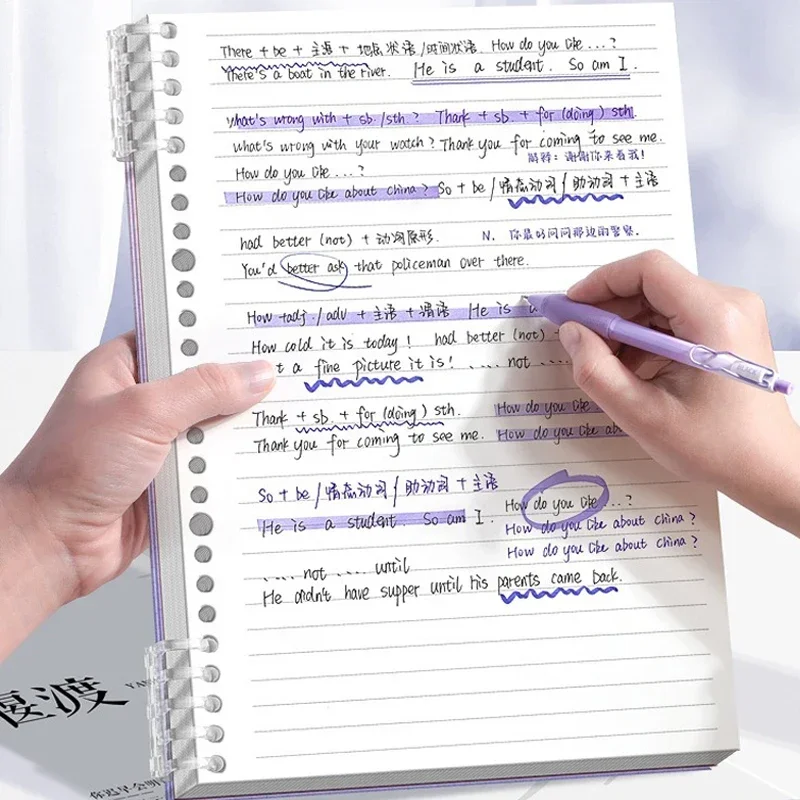 There + be + 主语 + 地点状语 / 时间状语. How do you like ...?
There's a boat in the river. He is a student. So am I.
what's wrong with + sb./sth? Thank + sb. + for (doing) sth.
what's wrong with your watch? Thank you for coming to see me.
解释: 谢谢你来看我!
How do you like ...?
How do you like about china? So + be / 情态动词 / 助动词 + 主语
had better (not) + 动词原形. N. 你最好问问那边的警察.
You'd better ask that policeman over there.
How + adj. / adv + 主语 + 谓语 He is a
How cold it is today! had better (not) +
t a fine picture it is! .... not ....
Thank + sb. + for (doing) sth. How do you like
Thank you for coming to see me. How do you like ab
So + be / 情态动词 / 助动词 + 主语
How do you like ...?
He is a student. So am I.
How do you like about china?
How do you like about china?
.... not .... until
He didn't have supper until his parents came back.
渡
你迟早会明